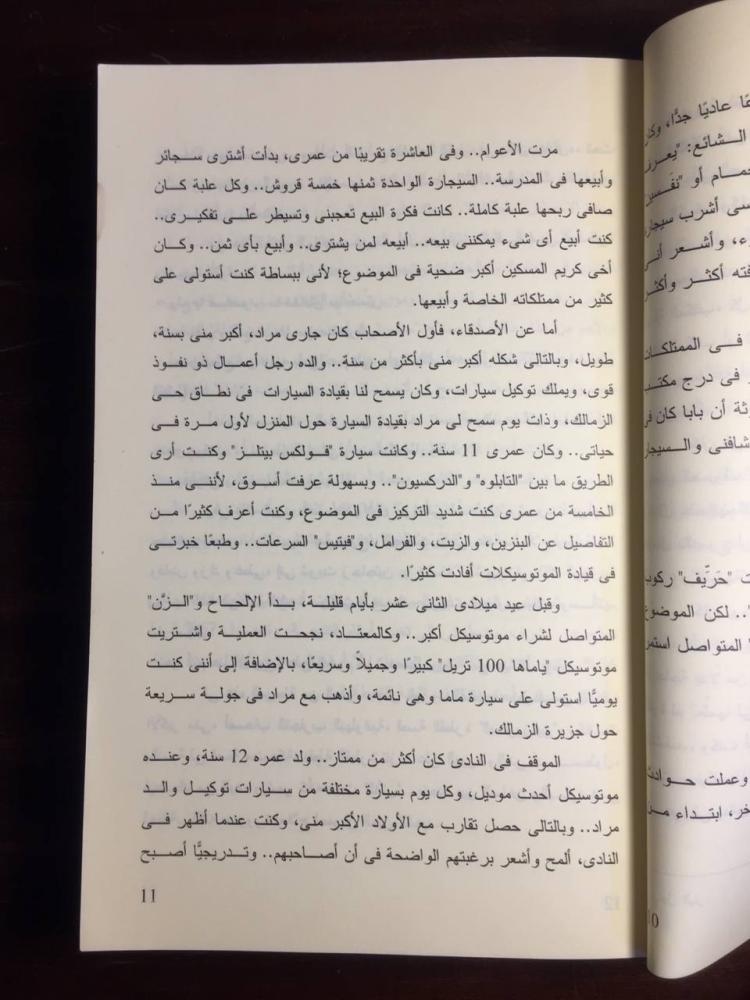 مرت الأعوام.. وفى العاشرة تقريبًا من عمرى، بدأت أشترى سجائر
وأبيعها فى المدرسة.. السيجارة الواحدة ثمنها خمسة قروش.. وكل علبة كان
صافى ربحها علبة كاملة.. كانت فكرة البيع تعجبنى وتسيطر على تفكيرى..
كنت أبيع أى شىء يمكننى بيعه.. أبيعه لمن يشترى.. وأبيع بأى ثمن.. وكان
أخى كريم المسكين أكبر ضحية فى الموضوع؛ لأنى ببساطة كنت أستولى على
كثير من ممتلكاته الخاصة وأبيعها.
أما عن الأصدقاء، فأول الأصحاب كان جارى مراد، أكبر منى بسنة،
طويل، وبالتالى شكله أكبر منى بأكثر من سنة.. والده رجل أعمال ذو نفوذ
قوى، ويملك توكيل سيارات، وكان يسمح لنا بقيادة السيارات فى نطاق حى
الزمالك، وذات يوم سمح لى مراد بقيادة السيارة حول المنزل لأول مرة فى
حياتى.. وكان عمرى 11 سنة.. وكانت سيارة "فولكس بيتلز" وكنت أرى
الطريق ما بين "التابلوه" و"الدركسيون".. وبسهولة عرفت أسوق، لأننى منذ
الخامسة من عمرى كنت شديد التركيز فى الموضوع، وكنت أعرف كثيرًا من
التفاصيل عن البنزين، والزيت، والفرامل، و"فيتيس" السرعات.. وطبعًا خبرتى
فى قيادة الموتوسيكلات أفادت كثيرًا.
وقبل عيد ميلادى الثانى عشر بأيام قليلة، بدأ الإلحاح و"الزَّن"
المتواصل لشراء موتوسيكل أكبر.. وكالمعتاد، نجحت العملية واشتريت
موتوسيكل "ياماها 100 تريل" كبيرًا وجميلاً وسريعًا، بالإضافة إلى أننى كنت
يوميًّا استولى على سيارة ماما وهى نائمة، وأذهب مع مراد فى جولة سريعة
حول جزيرة الزمالك.
الموقف فى النادى كان أكثر من ممتاز.. ولد عمره 12 سنة، وعنده
موتوسيكل أحدث موديل، وكل يوم بسيارة مختلفة من سيارات توكيل والد
مراد.. وبالتالى حصل تقارب مع الأولاد الأكبر منى، وكنت عندما أظهر فى
النادى، ألمح وأشعر برغبتهم الواضحة فى أن أصاحبهم.. وتدريجيًّا أصبح
11
عاديًا جدًّا، وكان
الشائع: "يعرز
حمام أو "نفسين
أشرب سيجارة
وأشعر أنى
أكثر وأكثر
فى الممتلكات
فى درج مكتب
أن بابا كان فى
شافنى والسيجار
"حَرِّيف" ركوب
".. لكن الموضوع
" المتواصل استمر
وعملت حوادث
ابتداء من